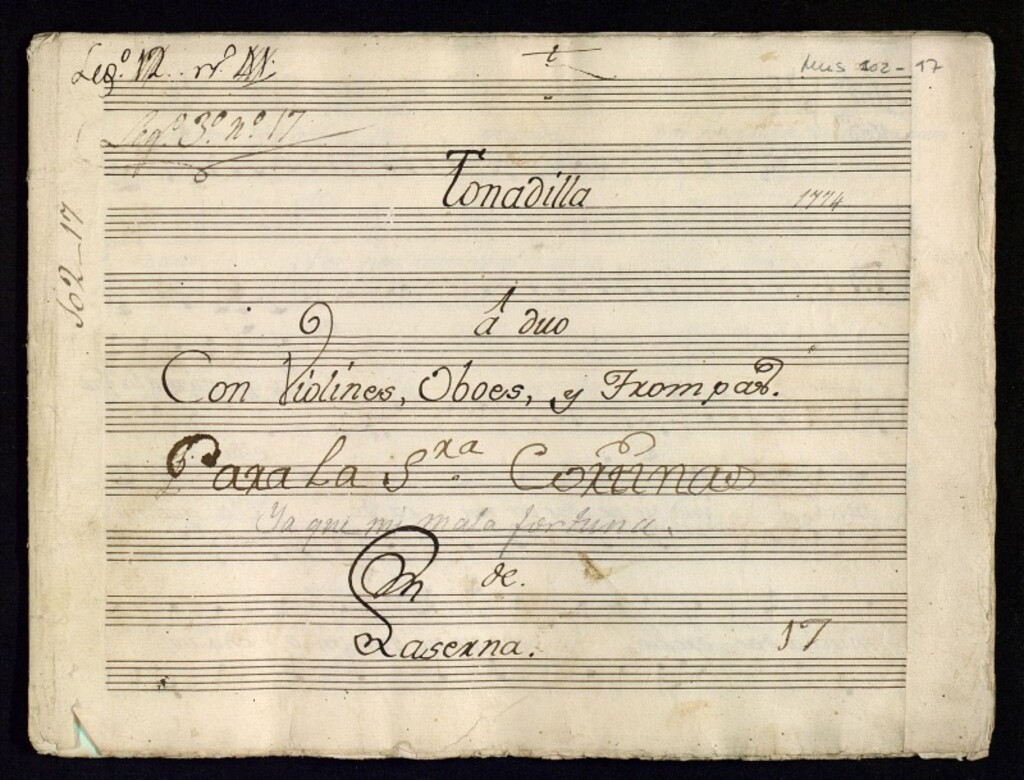 Leg.º 12. nº 41.
Mus 102-17
Leg.º 3.º n.º 17
Tonadilla
1774
102-17
á duo
Con Violines, Oboes, y Trompas.
Para la S.ra Cortinas
Ya que mi mala fortuna.
de.
Laserna.
17